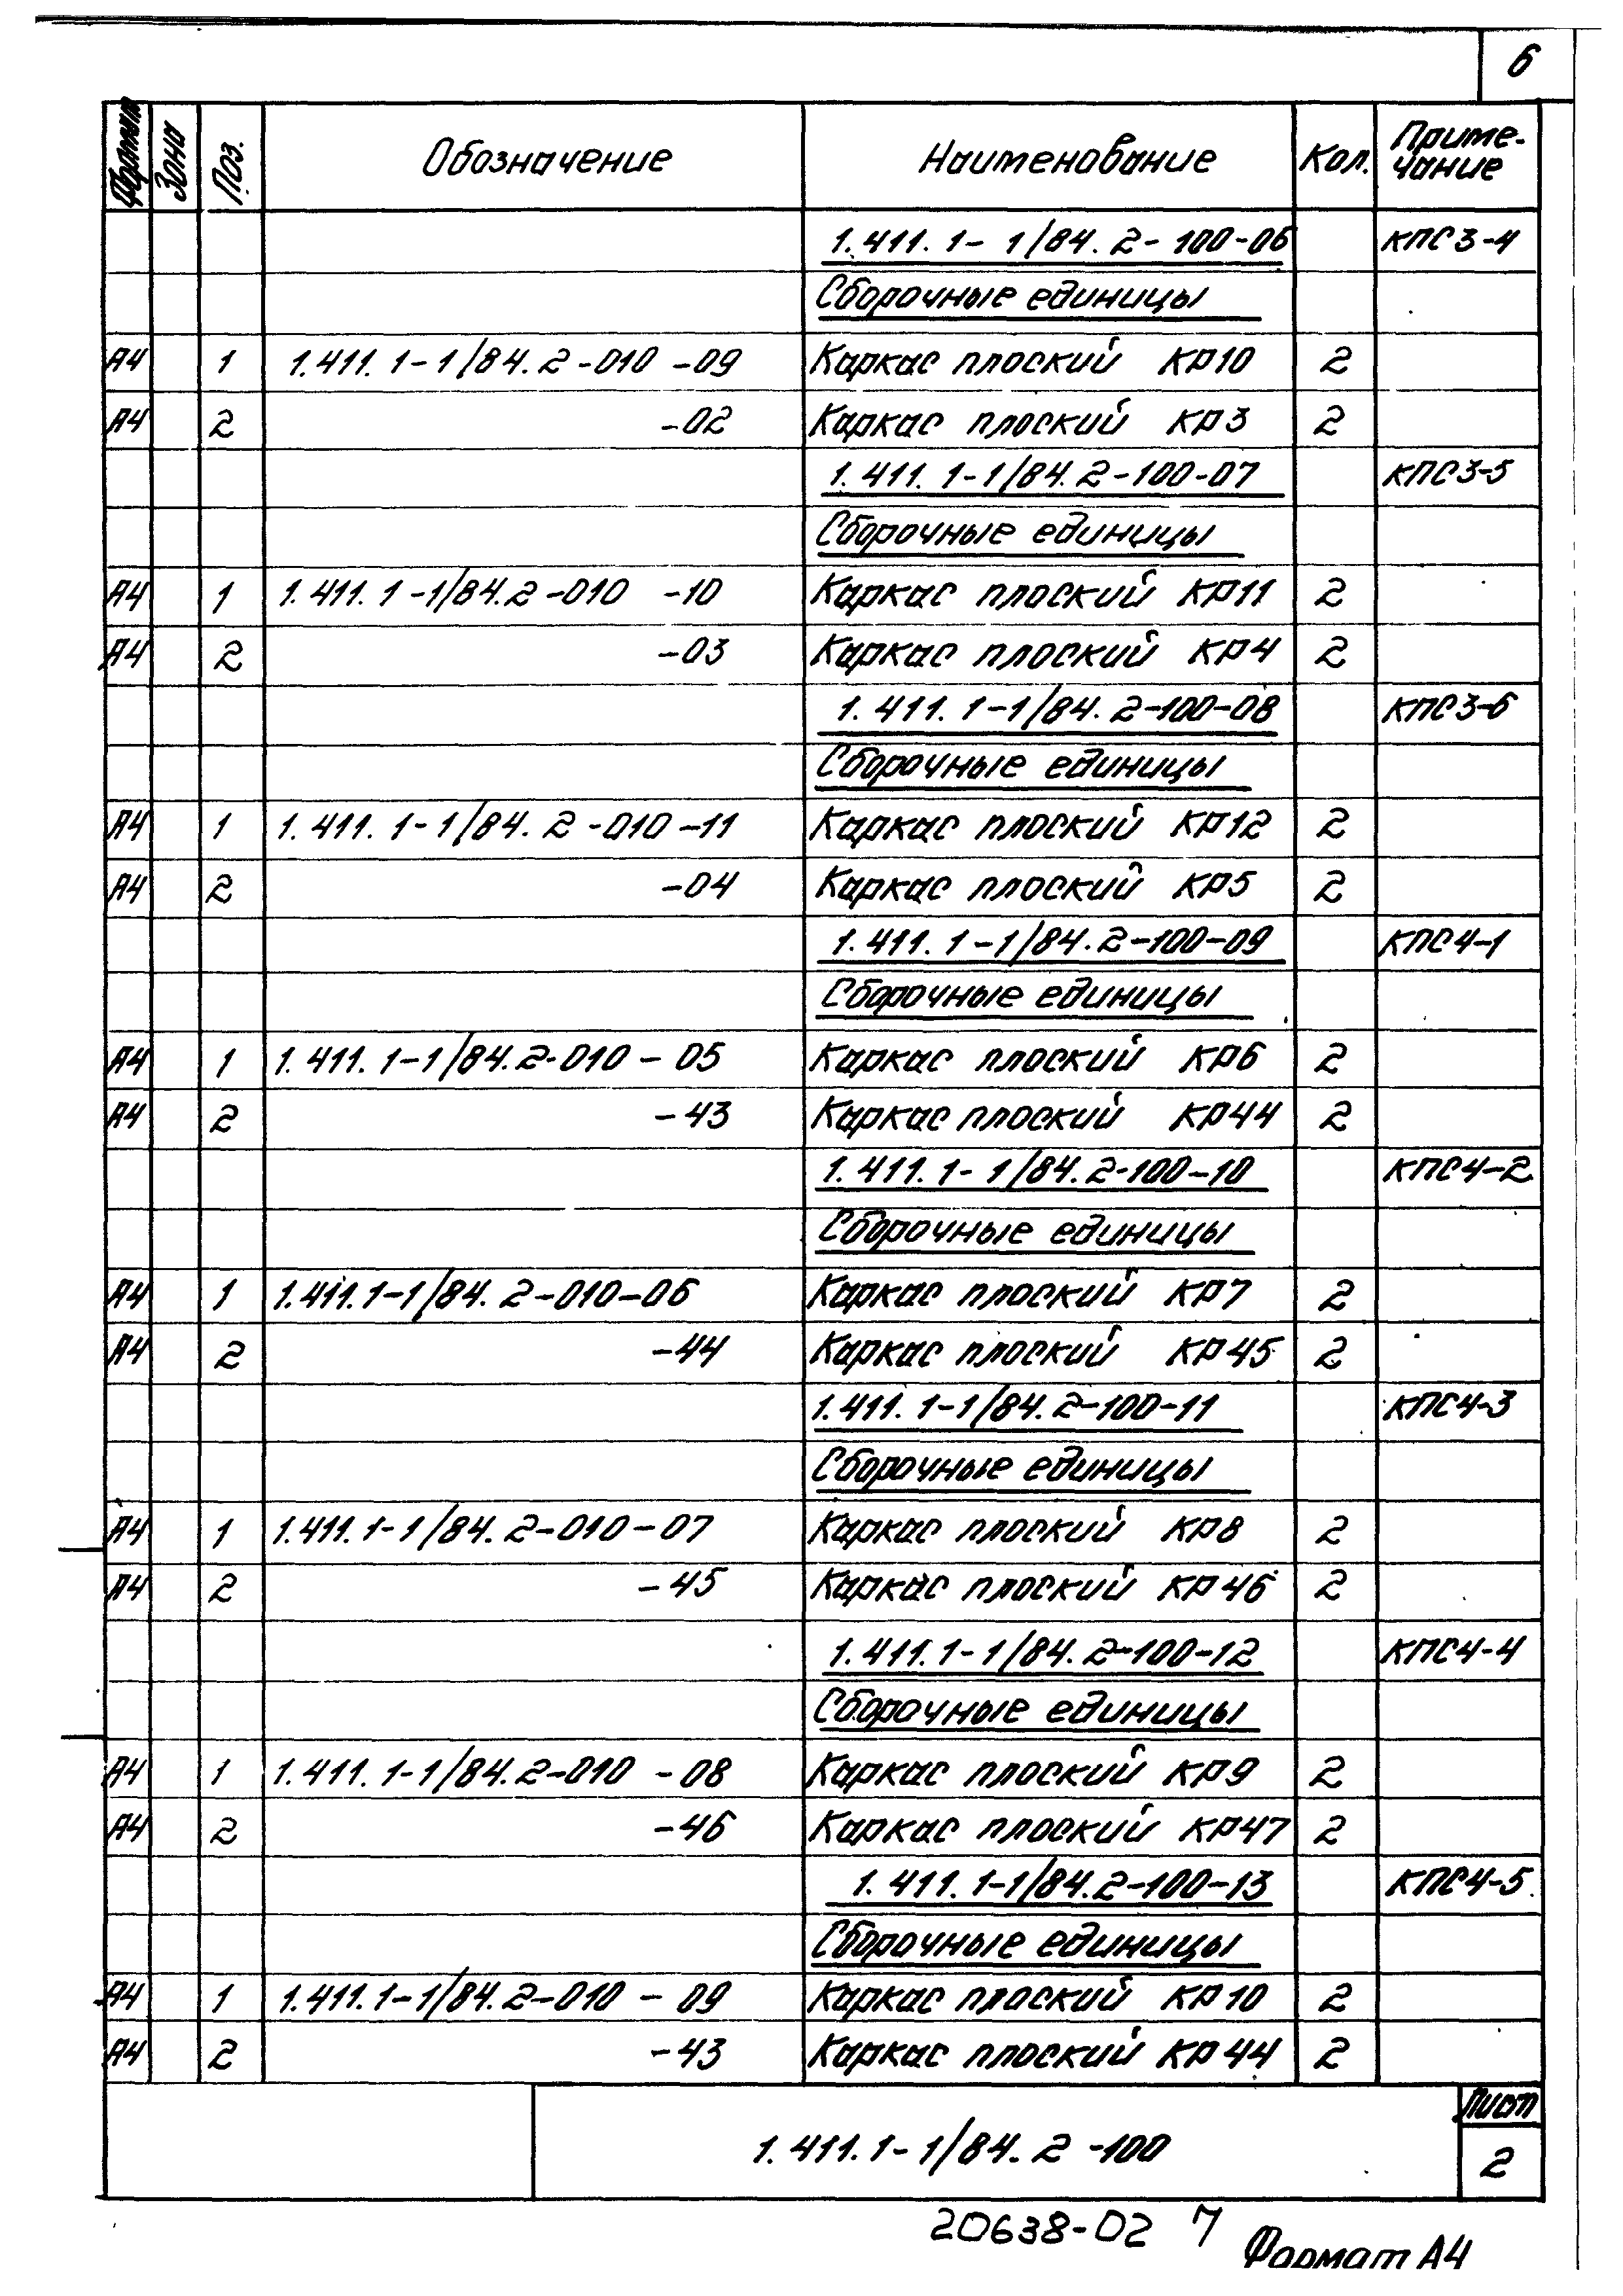 6
Формат Зона Поз. Обозначение Наименование Кол. Приме-
чание
1.411.1-1/84.2-100-06 КПС3-4
Сборочные единицы
А4 1 1.411.1-1/84.2-010-09 Каркас плоский КР10 2
А4 2 -02 Каркас плоский КР3 2
1.411.1-1/84.2-100-07 КПС3-5
Сборочные единицы
А4 1 1.411.1-1/84.2-010-10 Каркас плоский КР11 2
А4 2 -03 Каркас плоский КР4 2
1.411.1-1/84.2-100-08 КПС3-6
Сборочные единицы
А4 1 1.411.1-1/84.2-010-11 Каркас плоский КР12 2
А4 2 -04 Каркас плоский КР5 2
1.411.1-1/84.2-100-09 КПС4-1
Сборочные единицы
А4 1 1.411.1-1/84.2-010-05 Каркас плоский КР6 2
А4 2 -43 Каркас плоский КР44 2
1.411.1-1/84.2-100-10 КПС4-2
Сборочные единицы
А4 1 1.411.1-1/84.2-010-06 Каркас плоский КР7 2
А4 2 -44 Каркас плоский КР45 2
1.411.1-1/84.2-100-11 КПС4-3
Сборочные единицы
А4 1 1.411.1-1/84.2-010-07 Каркас плоский КР8 2
А4 2 -45 Каркас плоский КР46 2
1.411.1-1/84.2-100-12 КПС4-4
Сборочные единицы
А4 1 1.411.1-1/84.2-010-08 Каркас плоский КР9 2
А4 2 -46 Каркас плоский КР47 2
1.411.1-1/84.2-100-13 КПС4-5
Сборочные единицы
А4 1 1.411.1-1/84.2-010-09 Каркас плоский КР10 2
А4 2 -43 Каркас плоский КР44 2
1.411.1-1/84.2-100 Лист
2
20638-02 7
Формат А4